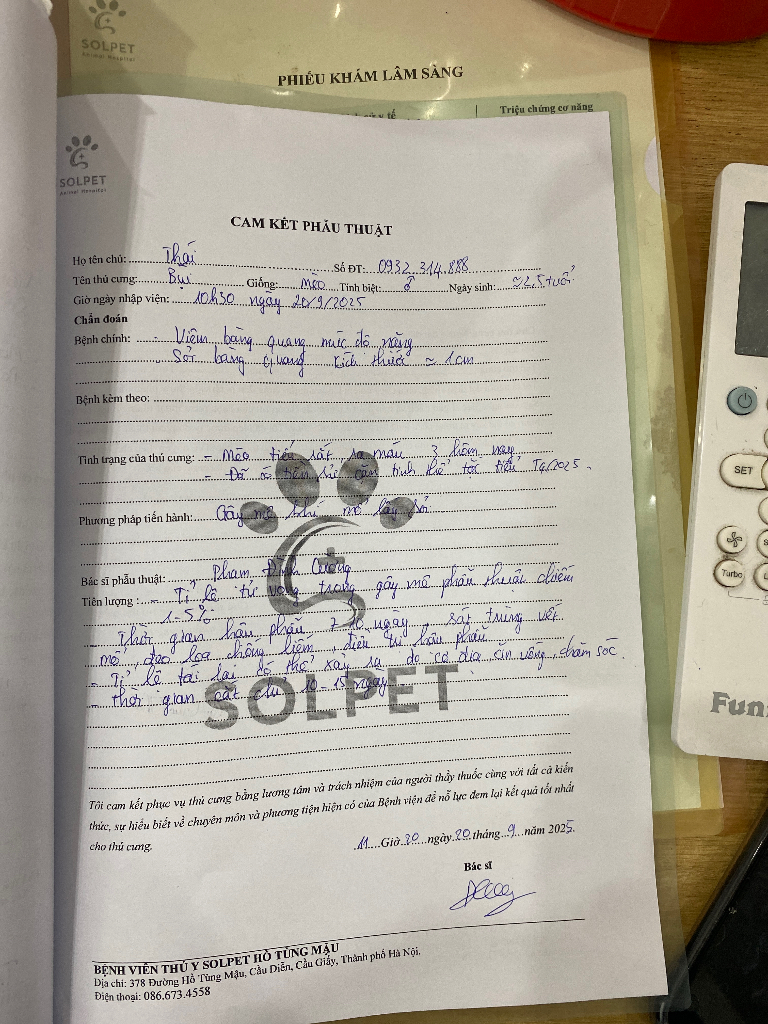 SOLPET
Animal Hospital
PHIẾU KHÁM LÂM SÀNG
Triệu chứng cơ năng
SOLPET
Animal Hospital
CAM KẾT PHẪU THUẬT
Họ tên chủ: Thái Số ĐT: 0932.314.888
Tên thú cưng: Bụi Giống: Mèo Tính biệt: ♂ Ngày sinh: ≈2,5 tuổi
Giờ ngày nhập viện: 10h30 ngày 20/9/2025
Chẩn đoán
Bệnh chính: Viêm bàng quang mức độ nặng
Sỏi bàng quang kích thước ≈ 1cm
Bệnh kèm theo:
Tình trạng của thú cưng: - Mèo tiểu sắt, ra máu 3 hôm nay
- Đã có tiền sử cặn tinh thể tắc tiểu T4/2025.
Phương pháp tiến hành: Gây mê khí mổ lấy sỏi
Bác sĩ phẫu thuật: Phạm Đình Cường
Tiên lượng: - Tỉ lệ tử vong trong gây mê phẫu thuật chiếm
1-5%
- Thời gian hậu phẫu 7-10 ngày, sát trùng vết
mổ, đeo loa chống liếm, điều trị hậu phẫu
- Tỉ lệ tái lại có thể xảy ra do cơ địa, ăn uống, chăm sóc.
- Thời gian cắt chỉ 10-15 ngày
SOLPET
Tôi cam kết phục vụ thú cưng bằng lương tâm và trách nhiệm của người thầy thuốc cùng với tất cả kiến
thức, sự hiểu biết về chuyên môn và phương tiện hiện có của Bệnh viện để nỗ lực đem lại kết quả tốt nhất
cho thú cưng.
11 Giờ 30 ngày 20 tháng 9 năm 2025.
Bác sĩ
BỆNH VIỆN THÚ Y SOLPET HỒ TÙNG MẬU
Địa chỉ: 378 Đường Hồ Tùng Mậu, Cầu Diễn, Cầu Giấy, Thành phố Hà Nội.
Điện thoại: 086.673.4558
SET
Turbo